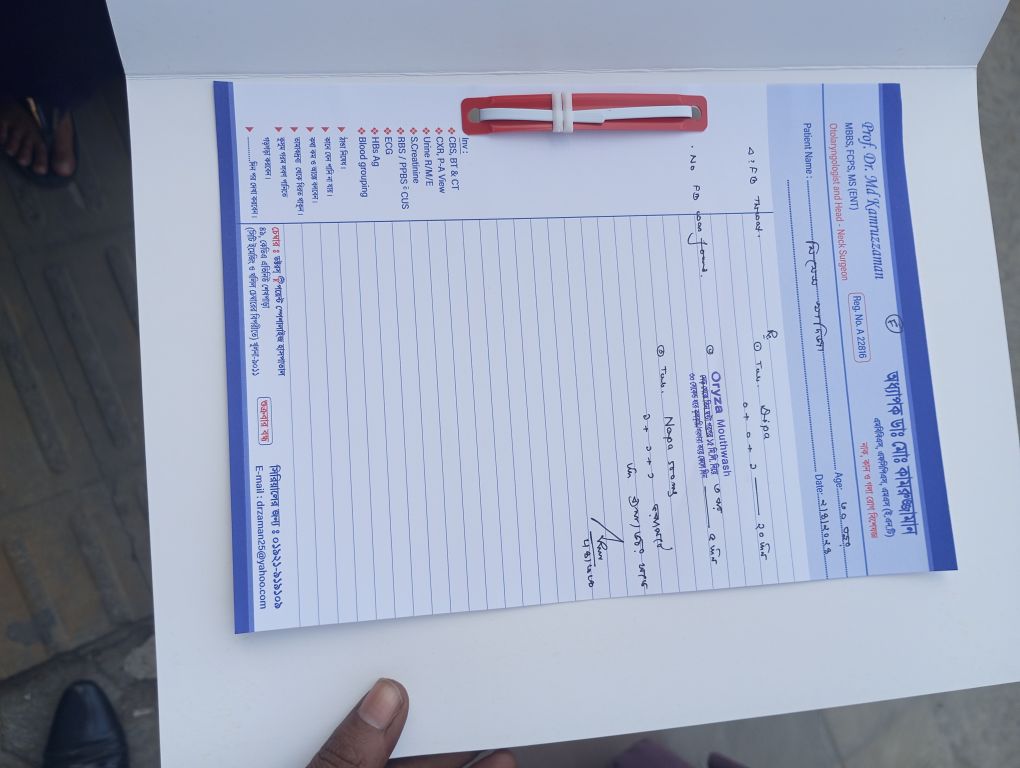 Prof. Dr. Md Kamruzzaman
MBBS, FCPS, MS (ENT)
Otolaryngologist and Head - Neck Surgeon
F
Reg. No. A 22816
অধ্যাপক ডাঃ মোঃ কামরুজ্জামান
এমবিবিএস, এফসিপিএস, এমএস (ই.এন.টি)
নাক, কান ও গলা রোগ বিশেষজ্ঞ
Patient Name : মিসেস খাদিজা
Age: ৬০ বছর
Date: ২/৪/২০২৪
Δ: ? FB Throat.
. No FB was found.
Rx
① Tab. Dipa
০ + ০ + ১ —— ২০ দিন
② Oryza Mouthwash
৩০ সেকেন্ড ধরে কুলকুচি/গরগরা করে ফেলে দিন —— ৭ দিন
③ Tab. Napa 500mg
১ + ১ + ১
Inv :
CBS, BT & CT
CXR, P-A View
Urine R/M/E
S.Creatinine
RBS / PPBS ē CUS
ECG
HBs Ag
Blood grouping
ঠান্ডা নিষেধ।
কানে যেন পানি না যায়।
কথা কম ও আস্তে বলবেন।
তামাকদ্রব্য থেকে বিরত থাকুন।
কুসুম গরম লবণ পানিতে
গড়গড়া করবেন।
............দিন পর দেখা করবেন।
চেম্বার : ডক্টরস্ পয়েন্ট স্পেশালাইজ হাসপাতাল
৪৯, কেডিএ এভিনিউ শেখপাড়া
(সিটি ইমেজিং ও খলিল চেম্বারের বিপরীতে) খুলনা-৯০১১
শুক্রবার বন্ধ
সিরিয়ালের জন্য : ০১৯২১-৯১৯১০৯
E-mail : drzaman25@yahoo.com